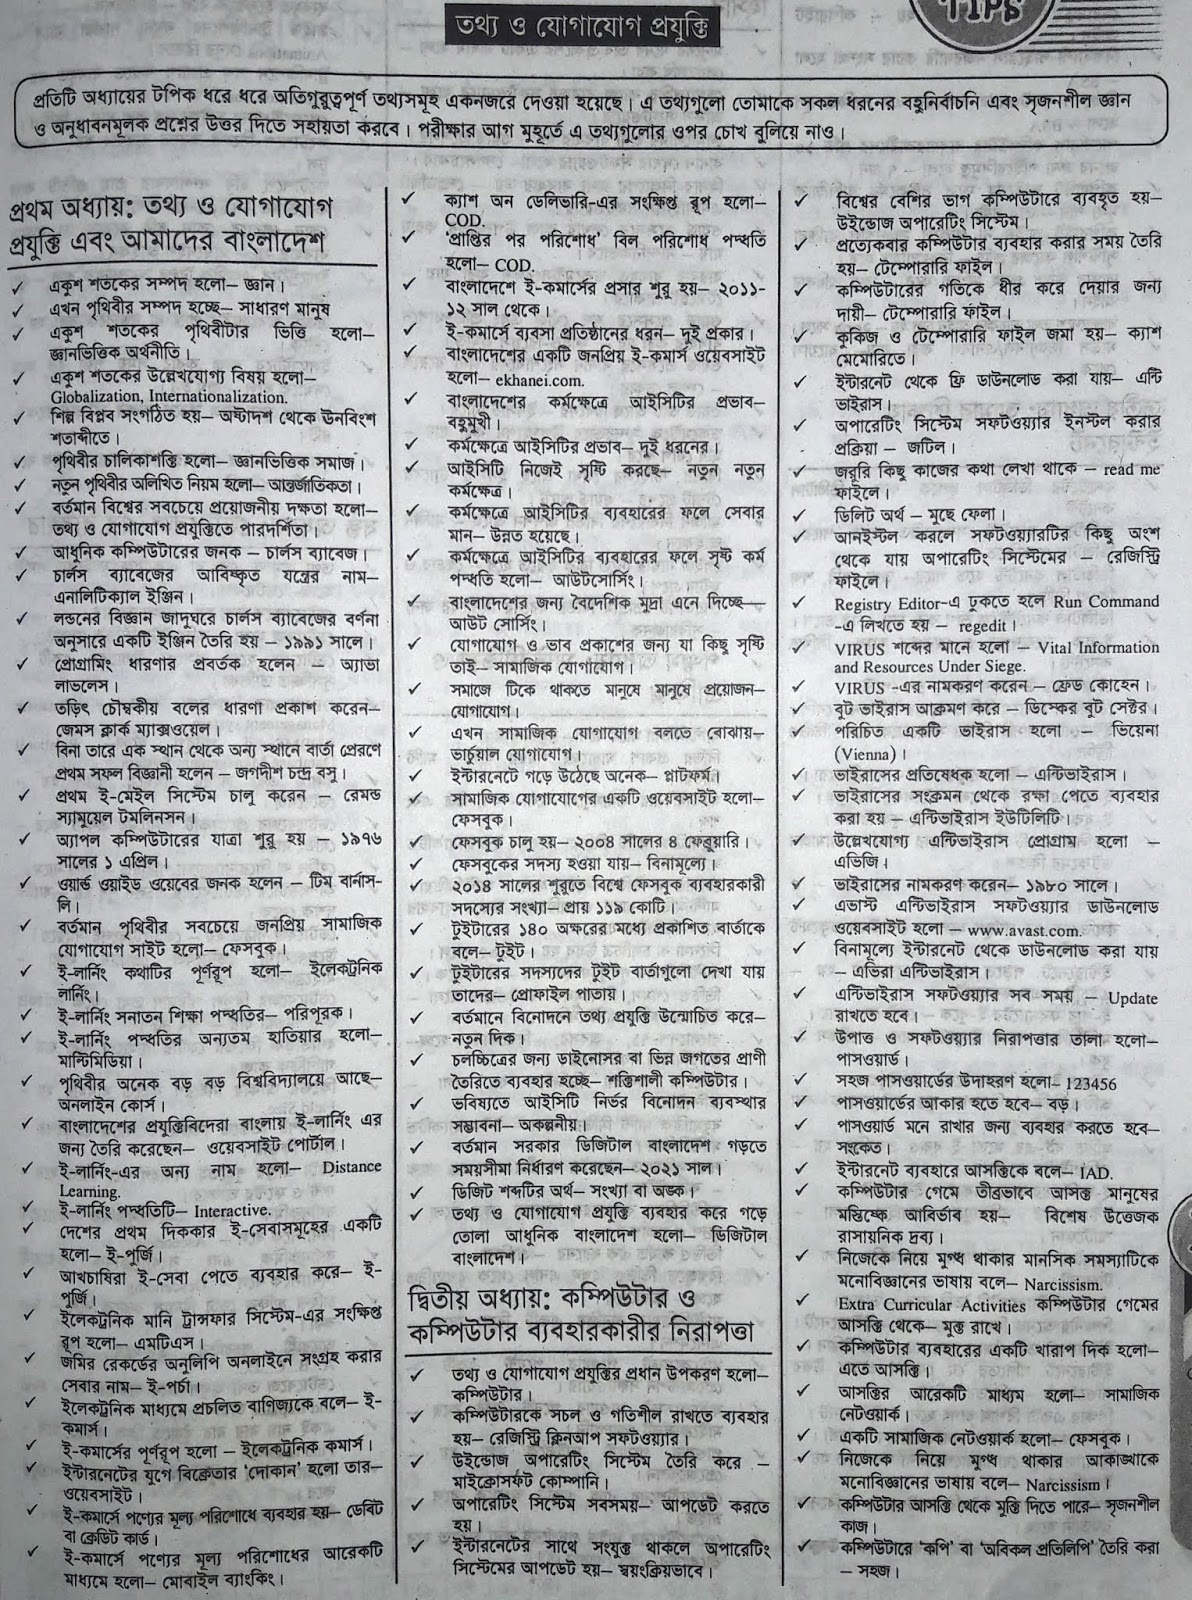 তথ্য ও যোগাযোগ প্রযুক্তি
TIPS
প্রতিটি অধ্যায়ের টপিক ধরে ধরে অতিগুরুত্বপূর্ণ তথ্যসমূহ একনজরে দেওয়া হয়েছে। এ তথ্যগুলো তোমাকে সকল ধরনের বহুনির্বাচনি এবং সৃজনশীল জ্ঞান
ও অনুধাবনমূলক প্রশ্নের উত্তর দিতে সহায়তা করবে। পরীক্ষার আগ মুহূর্তে এ তথ্যগুলোর ওপর চোখ বুলিয়ে নাও।
প্রথম অধ্যায়: তথ্য ও যোগাযোগ
প্রযুক্তি এবং আমাদের বাংলাদেশ
✓ একুশ শতকের সম্পদ হলো– জ্ঞান।
✓ এখন পৃথিবীর সম্পদ হচ্ছে– সাধারণ মানুষ
✓ একুশ শতকের পৃথিবীটার ভিত্তি হলো–
জ্ঞানভিত্তিক অর্থনীতি।
✓ একুশ শতকের উল্লেখযোগ্য বিষয় হলো–
Globalization, Internationalization.
✓ শিল্প বিপ্লব সংগঠিত হয়– অষ্টাদশ থেকে ঊনবিংশ
শতাব্দীতে।
✓ পৃথিবীর চালিকাশক্তি হলো– জ্ঞানভিত্তিক সমাজ।
✓ নতুন পৃথিবীর অলিখিত নিয়ম হলো– আন্তর্জাতিকতা।
✓ বর্তমান বিশ্বের সবচেয়ে প্রয়োজনীয় দক্ষতা হলো–
তথ্য ও যোগাযোগ প্রযুক্তিতে পারদর্শিতা।
✓ আধুনিক কম্পিউটারের জনক – চার্লস ব্যাবেজ।
✓ চার্লস ব্যাবেজের আবিষ্কৃত যন্ত্রের নাম–
এনালিটিক্যাল ইঞ্জিন।
✓ লন্ডনের বিজ্ঞান জাদুঘরে চার্লস ব্যাবেজের বর্ণনা
অনুসারে একটি ইঞ্জিন তৈরি হয় – ১৯৯১ সালে।
✓ প্রোগ্রামিং ধারণার প্রবর্তক হলেন – অ্যাডা
লাভলেস।
✓ তড়িৎ চৌম্বকীয় বলের ধারণা প্রকাশ করেন–
জেমস ক্লার্ক ম্যাক্সওয়েল।
✓ বিনা তারে এক স্থান থেকে অন্য স্থানে বার্তা প্রেরণে
প্রথম সফল বিজ্ঞানী হলেন – জগদীশ চন্দ্র বসু।
✓ প্রথম ই-মেইল সিস্টেম চালু করেন – রেমন্ড
স্যামুয়েল টমলিনসন।
✓ অ্যাপল কম্পিউটারের যাত্রা শুরু হয় – ১৯৭৬
সালের ১ এপ্রিল।
✓ ওয়ার্ল্ড ওয়াইড ওয়েবের জনক হলেন – টিম বার্নাস-
লি।
✓ বর্তমান পৃথিবীর সবচেয়ে জনপ্রিয় সামাজিক
যোগাযোগ সাইট হলো– ফেসবুক।
✓ ই-লার্নিং কথাটির পূর্ণরূপ হলো– ইলেকট্রনিক
লার্নিং।
✓ ই-লার্নিং সনাতন শিক্ষা পদ্ধতির– পরিপূরক।
✓ ই-লার্নিং পদ্ধতির অন্যতম হাতিয়ার হলো–
মাল্টিমিডিয়া।
✓ পৃথিবীর অনেক বড় বড় বিশ্ববিদ্যালয়ে আছে–
অনলাইন কোর্স।
✓ বাংলাদেশের প্রযুক্তিবিদেরা বাংলায় ই-লার্নিং এর
জন্য তৈরি করেছেন– ওয়েবসাইট পোর্টাল।
✓ ই-লার্নিং-এর অন্য নাম হলো– Distance
Learning.
✓ ই-লার্নিং পদ্ধতিটি– Interactive.
✓ দেশের প্রথম দিককার ই-সেবাসমূহের একটি
হলো– ই-পুর্জি।
✓ আখচাষিরা ই-সেবা পেতে ব্যবহার করে– ই-
পুর্জি।
✓ ইলেকট্রনিক মানি ট্রান্সফার সিস্টেম-এর সংক্ষিপ্ত
রূপ হলো– এমটিএস।
✓ জমির রেকর্ডের অনুলিপি অনলাইনে সংগ্রহ করার
সেবার নাম– ই-পর্চা।
✓ ইলেকট্রনিক মাধ্যমে প্রচলিত বাণিজ্যকে বলে– ই-
কমার্স।
✓ ই-কমার্সের পূর্ণরূপ হলো – ইলেকট্রনিক কমার্স।
✓ ইন্টারনেটের যুগে বিক্রেতার ‘দোকান’ হলো তার–
ওয়েবসাইট।
✓ ই-কমার্সে পণ্যের মূল্য পরিশোধে ব্যবহার হয়– ডেবিট
বা ক্রেডিট কার্ড।
✓ ই-কমার্সে পণ্যের মূল্য পরিশোধের আরেকটি
মাধ্যমে হলো– মোবাইল ব্যাংকিং।
✓ ক্যাশ অন ডেলিভারি-এর সংক্ষিপ্ত রূপ হলো–
COD.
✓ ‘প্রাপ্তির পর পরিশোধ’ বিল পরিশোধ পদ্ধতি
হলো– COD.
✓ বাংলাদেশে ই-কমার্সের প্রসার শুরু হয়– ২০১১-
১২ সাল থেকে।
✓ ই-কমার্সে ব্যবসা প্রতিষ্ঠানের ধরন– দুই প্রকার।
✓ বাংলাদেশের একটি জনপ্রিয় ই-কমার্স ওয়েবসাইট
হলো– ekhanei.com.
✓ বাংলাদেশের কর্মক্ষেত্রে আইসিটির প্রভাব–
বহুমুখী।
✓ কর্মক্ষেত্রে আইসিটির প্রভাব– দুই ধরনের।
✓ আইসিটি নিজেই সৃষ্টি করছে– নতুন নতুন
কর্মক্ষেত্র।
✓ কর্মক্ষেত্রে আইসিটির ব্যবহারের ফলে সেবার
মান– উন্নত হয়েছে।
✓ কর্মক্ষেত্রে আইসিটির ব্যবহারের ফলে সৃষ্ট কর্ম
পদ্ধতি হলো– আউটসোর্সিং।
✓ বাংলাদেশের জন্য বৈদেশিক মুদ্রা এনে দিচ্ছে–
আউট সোর্সিং।
✓ যোগাযোগ ও ভাব প্রকাশের জন্য যা কিছু সৃষ্টি
তাই– সামাজিক যোগাযোগ।
✓ সমাজে টিকে থাকতে মানুষে মানুষে প্রয়োজন–
যোগাযোগ।
✓ এখন সামাজিক যোগাযোগ বলতে বোঝায়–
ভার্চুয়াল যোগাযোগ।
✓ ইন্টারনেটে গড়ে উঠেছে অনেক– প্লাটফর্ম।
✓ সামাজিক যোগাযোগের একটি ওয়েবসাইট হলো–
ফেসবুক।
✓ ফেসবুক চালু হয়– ২০০৪ সালের ৪ ফেব্রুয়ারি।
✓ ফেসবুকের সদস্য হওয়া যায়– বিনামূল্যে।
✓ ২০১৪ সালের শুরুতে বিশ্বে ফেসবুক ব্যবহারকারী
সদস্যের সংখ্যা– প্রায় ১১৯ কোটি।
✓ টুইটারের ১৪০ অক্ষরের মধ্যে প্রকাশিত বার্তাকে
বলে– টুইট।
✓ টুইটারের সদস্যদের টুইট বার্তাগুলো দেখা যায়
তাদের– প্রোফাইল পাতায়।
✓ বর্তমানে বিনোদনে তথ্য প্রযুক্তি উন্মোচিত করে–
নতুন দিক।
✓ চলচ্চিত্রের জন্য ডাইনোসর বা ভিন্ন জগতের প্রাণী
তৈরিতে ব্যবহার হচ্ছে– শক্তিশালী কম্পিউটার।
✓ ভবিষ্যতে আইসিটি নির্ভর বিনোদন ব্যবস্থার
সম্ভাবনা– অকল্পনীয়।
✓ বর্তমান সরকার ডিজিটাল বাংলাদেশ গড়তে
সময়সীমা নির্ধারণ করেছেন– ২০২১ সাল।
✓ ডিজিট শব্দটির অর্থ– সংখ্যা বা অঙ্ক।
✓ তথ্য ও যোগাযোগ প্রযুক্তি ব্যবহার করে গড়ে
তোলা আধুনিক বাংলাদেশ হলো– ডিজিটাল
বাংলাদেশ।
দ্বিতীয় অধ্যায়: কম্পিউটার ও
কম্পিউটার ব্যবহারকারীর নিরাপত্তা
✓ তথ্য ও যোগাযোগ প্রযুক্তির প্রধান উপকরণ হলো–
কম্পিউটার।
✓ কম্পিউটারকে সচল ও গতিশীল রাখতে ব্যবহার
হয়– রেজিস্ট্রি ক্লিনআপ সফটওয়্যার।
✓ উইন্ডোজ অপারেটিং সিস্টেম তৈরি করে –
মাইক্রোসফট কোম্পানি।
✓ অপারেটিং সিস্টেম সবসময়– আপডেট করতে
হয়।
✓ ইন্টারনেটের সাথে সংযুক্ত থাকলে অপারেটিং
সিস্টেমের আপডেট হয়– স্বয়ংক্রিয়ভাবে।
✓ বিশ্বের বেশির ভাগ কম্পিউটারে ব্যবহৃত হয়–
উইন্ডোজ অপারেটিং সিস্টেম।
✓ প্রত্যেকবার কম্পিউটার ব্যবহার করার সময় তৈরি
হয়– টেম্পোরারি ফাইল।
✓ কম্পিউটারের গতিকে ধীর করে দেয়ার জন্য
দায়ী– টেম্পোরারি ফাইল।
✓ কুকিজ ও টেম্পোরারি ফাইল জমা হয়– ক্যাশ
মেমোরিতে।
✓ ইন্টারনেট থেকে ফ্রি ডাউনলোড করা যায়– এন্টি
ভাইরাস।
✓ অপারেটিং সিস্টেম সফটওয়্যার ইনস্টল করার
প্রক্রিয়া – জটিল।
✓ জরুরি কিছু কাজের কথা লেখা থাকে – read me
ফাইলে।
✓ ডিলিট অর্থ – মুছে ফেলা।
✓ আনইন্সটল করলে সফটওয়্যারটির কিছু অংশ
থেকে যায় অপারেটিং সিস্টেমের – রেজিস্ট্রি
ফাইলে।
✓ Registry Editor-এ ঢুকতে হলে Run Command
-এ লিখতে হয় – regedit।
✓ VIRUS শব্দের মানে হলো – Vital Information
and Resources Under Siege.
✓ VIRUS -এর নামকরণ করেন – ফ্রেড কোহেন।
✓ বুট ভাইরাস আক্রমণ করে – ডিস্কের বুট সেক্টর।
✓ পরিচিত একটি ভাইরাস হলো – ভিয়েনা
(Vienna)।
✓ ভাইরাসের প্রতিষেধক হলো – এন্টিভাইরাস।
✓ ভাইরাসের সংক্রমন থেকে রক্ষা পেতে ব্যবহার
করা হয় – এন্টিভাইরাস ইউটিলিটি।
✓ উল্লেখযোগ্য এন্টিভাইরাস প্রোগ্রাম হলো –
এভিজি।
✓ ভাইরাসের নামকরণ করেন– ১৯৮০ সালে।
✓ এভাস্ট এন্টিভাইরাস সফটওয়্যার ডাউনলোড
ওয়েবসাইট হলো – www.avast.com.
✓ বিনামূল্যে ইন্টারনেট থেকে ডাউনলোড করা যায়
– এভিরা এন্টিভাইরাস।
✓ এন্টিভাইরাস সফটওয়্যার সব সময় – Update
রাখতে হবে।
✓ উপাত্ত ও সফটওয়্যার নিরাপত্তার তালা হলো–
পাসওয়ার্ড।
✓ সহজ পাসওয়ার্ডের উদাহরণ হলো– 123456
✓ পাসওয়ার্ডের আকার হতে হবে– বড়।
✓ পাসওয়ার্ড মনে রাখার জন্য ব্যবহার করতে হবে–
সংকেত।
✓ ইন্টারনেট ব্যবহারে আসক্তিকে বলে– IAD.
✓ কম্পিউটার গেমে তীব্রভাবে আসক্ত মানুষের
মস্তিষ্কে আবির্ভাব হয়– বিশেষ উত্তেজক
রাসায়নিক দ্রব্য।
✓ নিজেকে নিয়ে মুগ্ধ থাকার মানসিক সমস্যাটিকে
মনোবিজ্ঞানের ভাষায় বলে– Narcissism.
✓ Extra Curricular Activities কম্পিউটার গেমের
আসক্তি থেকে– মুক্ত রাখে।
✓ কম্পিউটার ব্যবহারের একটি খারাপ দিক হলো–
এতে আসক্তি।
✓ আসক্তির আরেকটি মাধ্যম হলো– সামাজিক
নেটওয়ার্ক।
✓ একটি সামাজিক নেটওয়ার্ক হলো– ফেসবুক।
✓ নিজেকে নিয়ে মুগ্ধ থাকার আকাঙ্খাকে
মনোবিজ্ঞানের ভাষায় বলে– Narcissism।
✓ কম্পিউটার আসক্তি থেকে মুক্তি দিতে পারে– সৃজনশীল
কাজ।
✓ কম্পিউটারে ‘কপি’ বা ‘অবিকল প্রতিলিপি’ তৈরি করা
– সহজ।